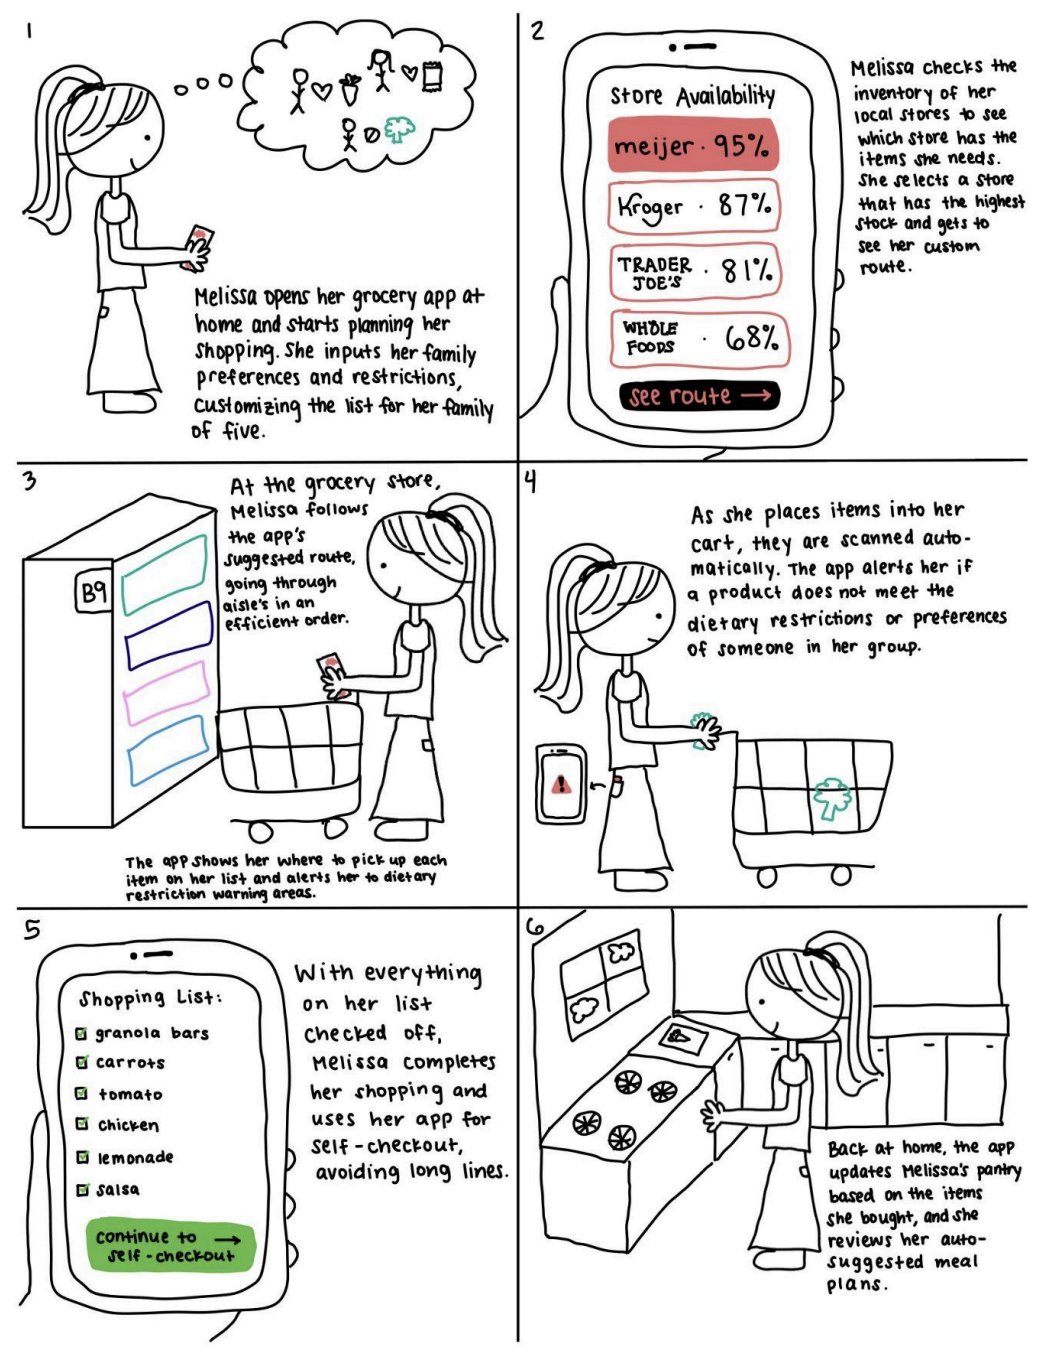 1
Melissa opens her grocery app at
home and starts planning her
shopping. She inputs her family
preferences and restrictions,
customizing the list for her family
of five.
2
Store Availability
meijer · 95%
Kroger · 87%
TRADER
JOE'S · 81%
WHOLE
FOODS · 68%
see route →
Melissa checks the
inventory of her
local stores to see
which store has the
items she needs.
She selects a store
that has the highest
stock and gets to
see her custom
route.
3
At the grocery store,
Melissa follows
the app's
suggested route,
going through
aisle's in an
efficient order.
B9
The app shows her where to pick up each
item on her list and alerts her to dietary
restriction warning areas.
4
As she places items into her
cart, they are scanned auto-
matically. The app alerts her if
a product does not meet the
dietary restrictions or preferences
of someone in her group.
!
5
Shopping List:
granola bars
carrots
tomato
chicken
lemonade
salsa
continue to →
self-checkout
With everything
on her list
checked off,
Melissa completes
her shopping and
uses her app for
self-checkout,
avoiding long lines.
6
Back at home, the app
updates Melissa's pantry
based on the items
she bought, and she
reviews her auto-
suggested meal
plans.